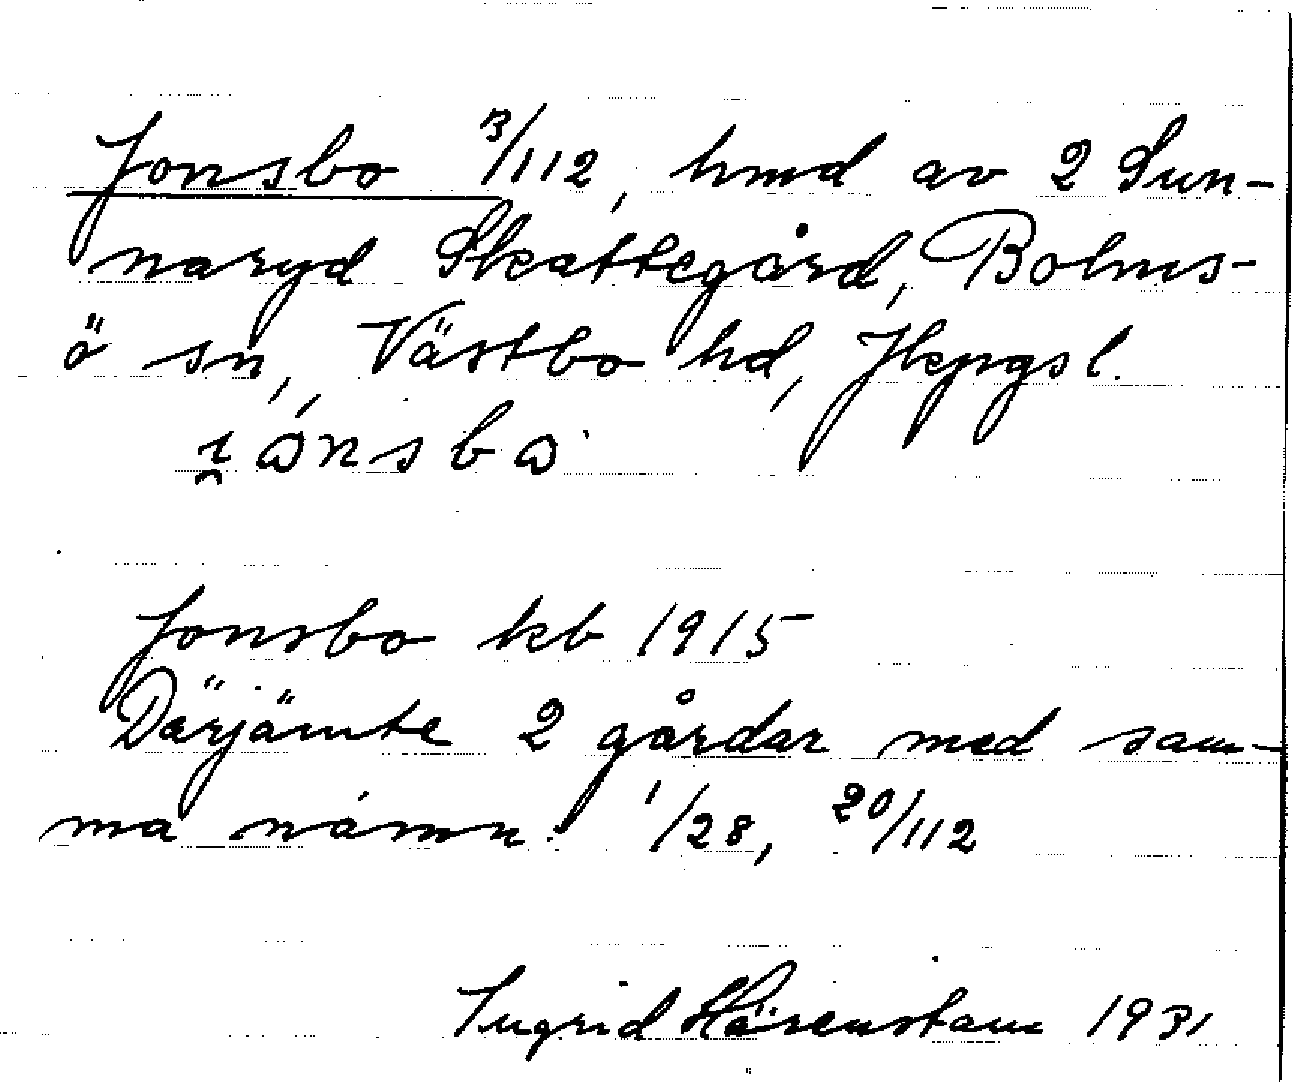 Jonsbo 3/112, hmd av 2 Sun-
naryd Skattegård, Bolms-
ö sn, Västbo hd, Jkpgs l.
Jonsbo kb 1915
Därjämte 2 gårdar med sam-
ma namn: 1/28, 20/112
Ingrid Härenstam 1931